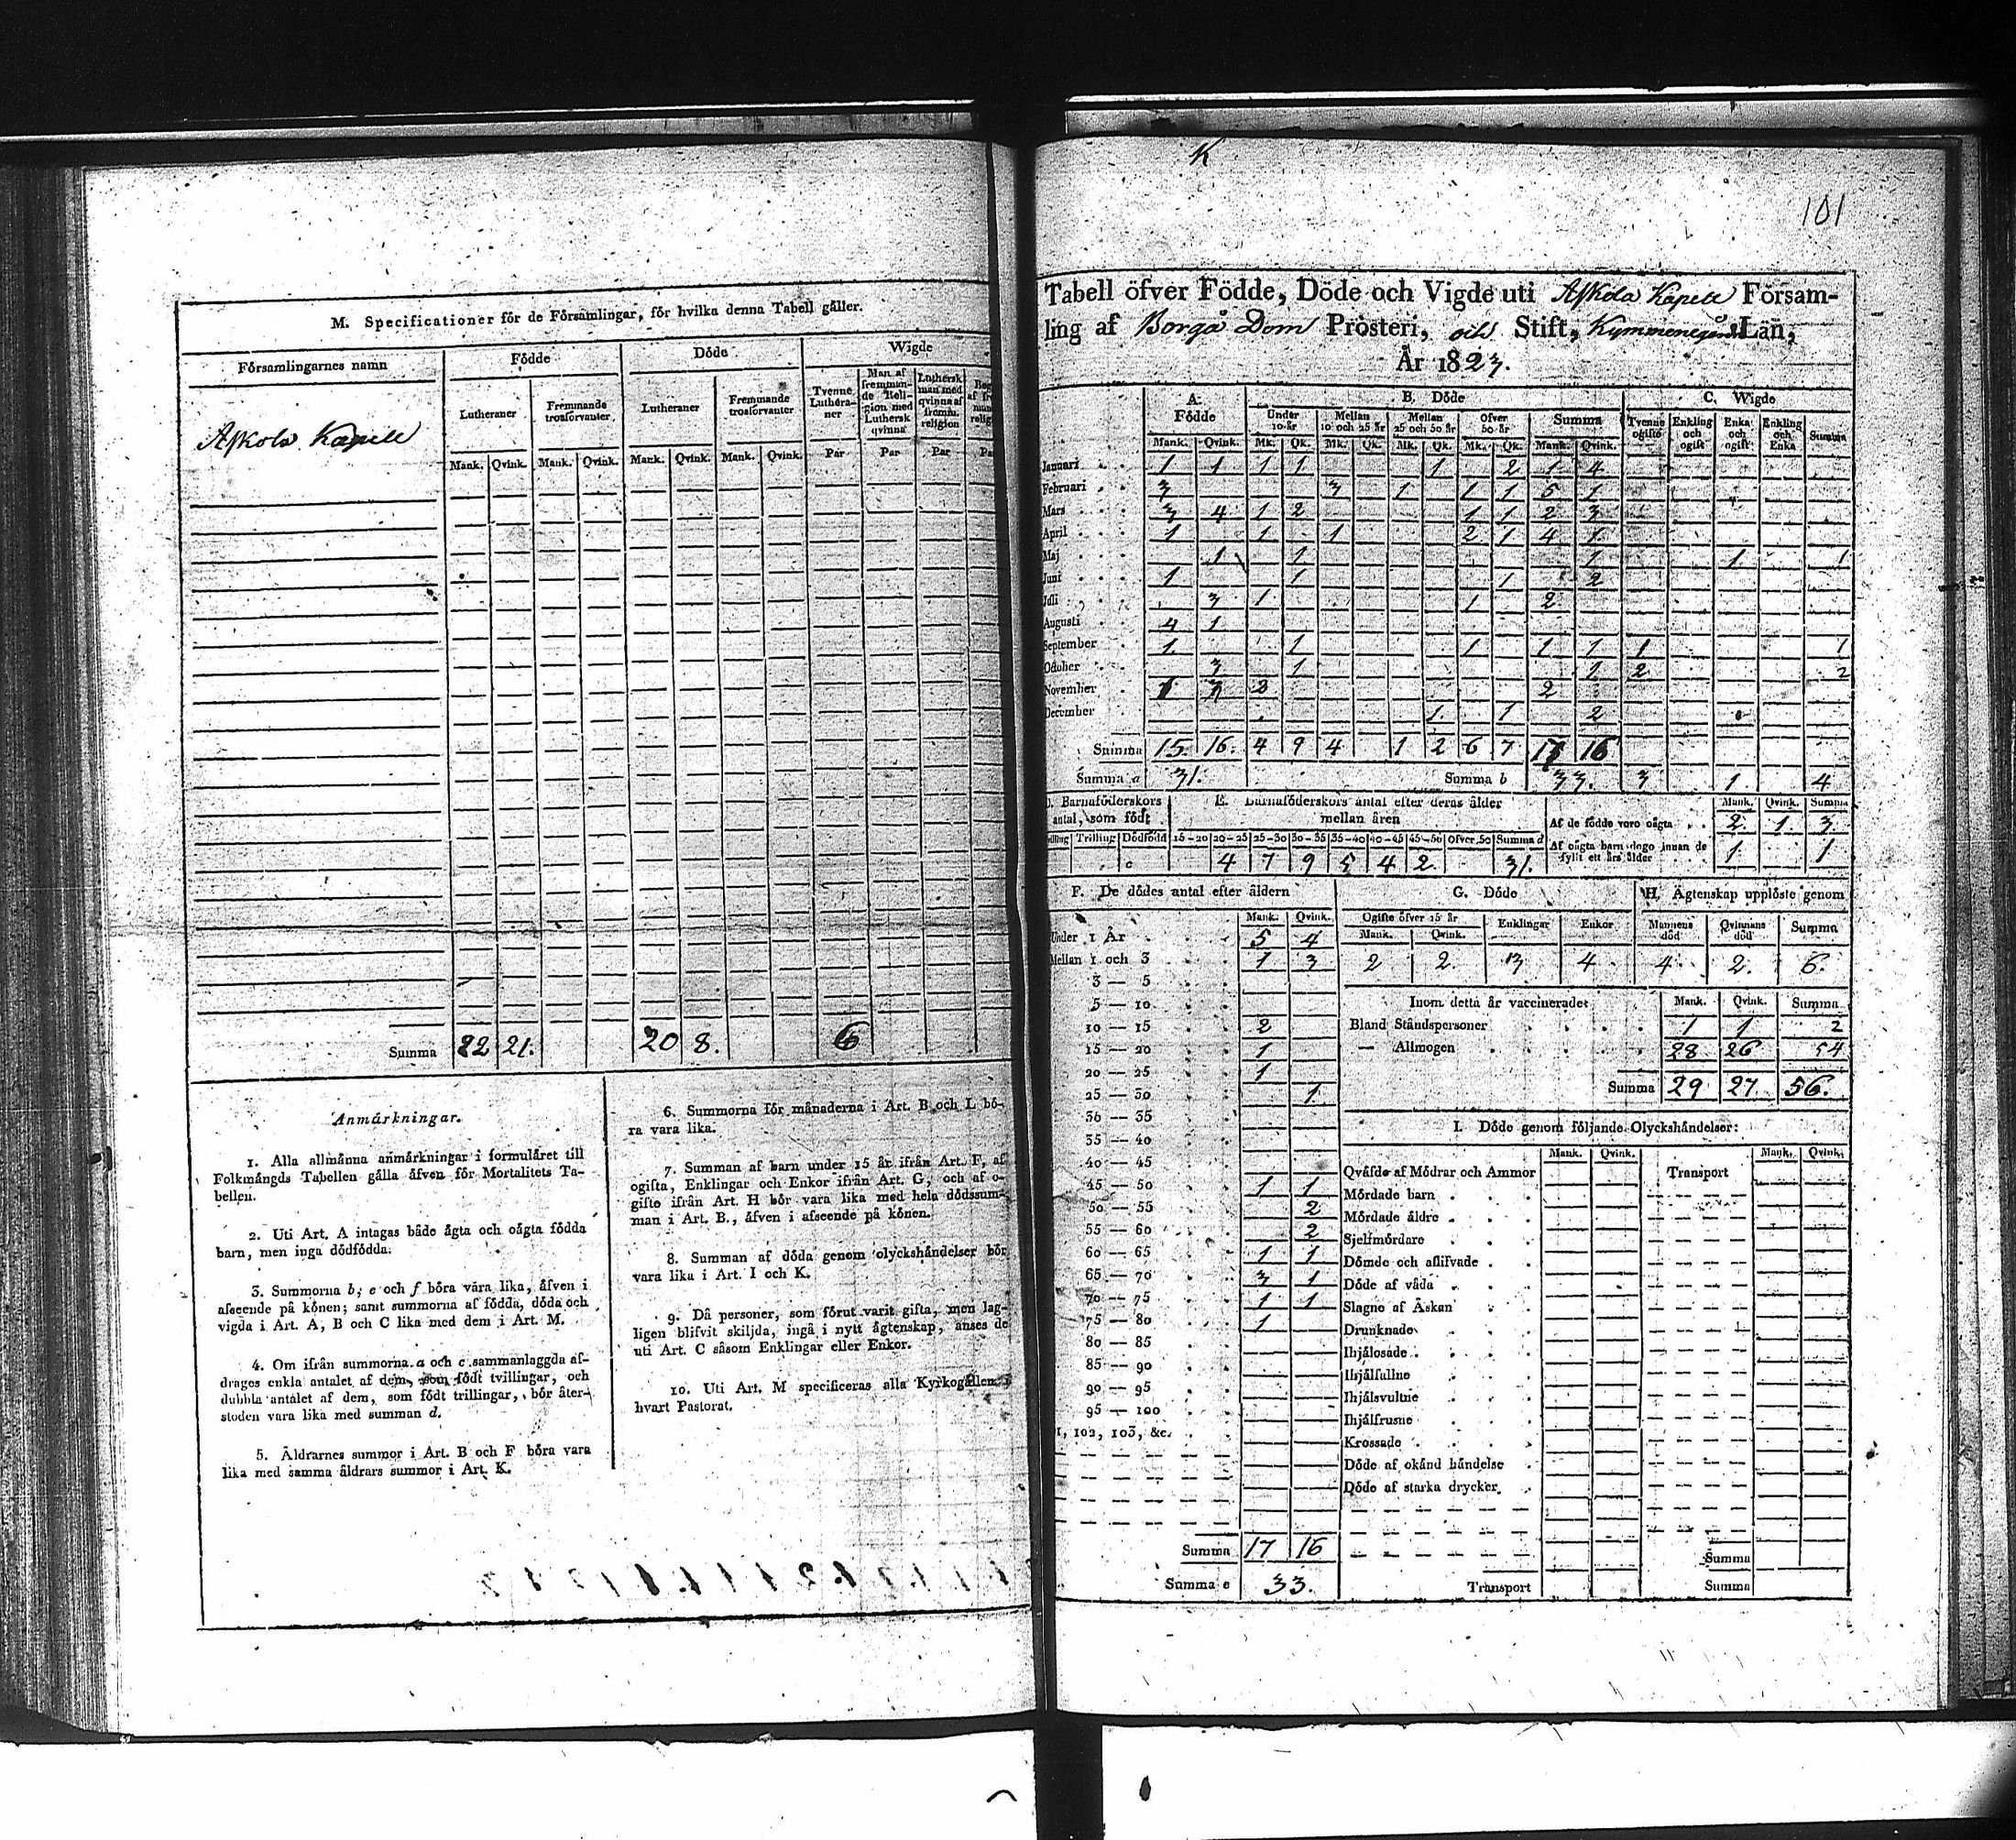 M. Specificationer för de Församlingar, för hvilka denna Tabell gäller.
Församlingarnes namn
Födde
Döde
Wigde
Lutheraner
Fremmande trosförvanter
Lutheraner
Fremmande trosförvanter
Tvenne Lutheraner
Man af fremmande Religion med Luthersk qvinna
Luthersk man med qvinna af fremm. religion
Mank. Qvink. Mank. Qvink. Mank. Qvink. Mank. Qvink. Par Par Par
Askola Kapell
Summa 22 21. 20 8. 6
Anmärkningar.
1. Alla allmänna anmärkningar i formuläret till
Folkmängds Tabellen gälla äfven för Mortalitets Ta-
bellen.
2. Uti Art. A intagas både ägta och oägta födda
barn, men inga dödfödda.
3. Summorna b, e och f böra vara lika, äfven i
afseende på könen; samt summorna af födda, döda och
vigda i Art. A, B och C lika med dem i Art. M.
4. Om ifrån summorna a och c sammanlaggda af-
drages enkla antalet af dem, som födt tvillingar, och
dubbla antalet af dem, som födt trillingar, bör åter-
stoden vara lika med summan d.
5. Äldrarnes summor i Art. B och F böra vara
lika med samma äldrars summor i Art. K.
6. Summorna för månaderna i Art. B och L bö-
ra vara lika.
7. Summan af barn under 15 år ifrån Art. F, af
ogifta, Enklingar och Enkor ifrån Art. G, och af o-
gifte ifrån Art. H bör vara lika med hela dödssum-
man i Art. B., äfven i afseende på könen.
8. Summan af döda genom olyckshändelser bör
vara lika i Art. I och K.
9. Då personer, som förut varit gifta, men lag-
ligen blifvit skiljda, ingå i nytt ägtenskap, anses de
uti Art. C såsom Enklingar eller Enkor.
10. Uti Art. M specificeras alla Kyrkogällen i
hvart Pastorat.
K
101
Tabell öfver Födde, Döde och Vigde uti Askola Kapell Försam-
ling af Borgå Dom Prosteri, Stift, Kymmenegårds Län,
År 1823.
A. Födde
B. Döde
C. Wigde
Under 10 år
Mellan 10 och 25 år
Mellan 25 och 50 år
Öfver 50 år
Summa
Tvenne ogifte
Enkling och ogift
Enka och ogift
Enkling och Enka
Summa
Mank. Qvink. Mk. Qk. Mk. Qk. Mk. Qk. Mk. Qk. Mank. Qvink.
Januari 1 1 1 1 1 2 1 4
Februari 3 3 1 1 1 5 1
Mars 3 4 1 2 1 1 2 3
April 1 1 1 2 1 4 1
Maj 1 1 1 1 1
Juni 1 1 1 2
Juli 3 1 1 2
Augusti 4 1
September 1 1 1 1 1 1 1
October 3 1 1 2 2
November 1 3 2 2
December 1 1 2
Summa 15. 16. 4 9 4 1 2 6 7 17 16
Summa a 31. Summa b 33. 3 1. 4
D. Barnaföderskors antal, som födt
Tvilling Trilling Dödfödd
c
E. Barnaföderskors antal efter deras ålder
mellan åren
15-20 20-25 25-30 30-35 35-40 40-45 45-50 Öfver 50 Summa d
4 7 9 5 4 2 31.
Mank. Qvink. Summa
Af de födde voro oägta 2 1 3
Af oägta barn dogo innan de
fyllt ett års ålder 1 1
F. De dödes antal efter åldern
Mank. Qvink.
Under 1 År 5 4
Mellan 1 och 3 1 3
3 — 5
5 — 10
10 — 15 2
15 — 20 1
20 — 25 1
25 — 30 1
30 — 35
35 — 40
40 — 45
45 — 50 1 1
50 — 55 2
55 — 60 2
60 — 65 1 1
65 — 70 3 1
70 — 75 1 1
75 — 80 1
80 — 85
85 — 90
90 — 95
95 — 100
1, 102, 103, &c.
Summa 17 16
Summa e 33.
G. Döde
Ogifte öfver 15 år
Mank. Qvink. Enklingar Enkor
2 2 3 4
H. Ägtenskap upplöste genom
Mannens död Qvinnans död Summa
4 2. 6.
Inom detta år vaccinerades Mank. Qvink. Summa
Bland Ståndspersoner 1 1 2
— Allmogen 28 26 54
Summa 29 27 56.
I. Döde genom följande Olyckshändelser:
Mank. Qvink. Mank. Qvink.
Qväfde af Mödrar och Ammor
Transport
Mördade barn
Mördade äldre
Sjelfmördare
Dömde och aflifvade
Döde af våda
Slagne af Åskan
Drunknade
Ihjälosade
Ihjälfallne
Ihjälsvultne
Ihjälfrusne
Krossade
Döde af okänd händelse
Döde af starka drycker
Summa
Transport
Summa